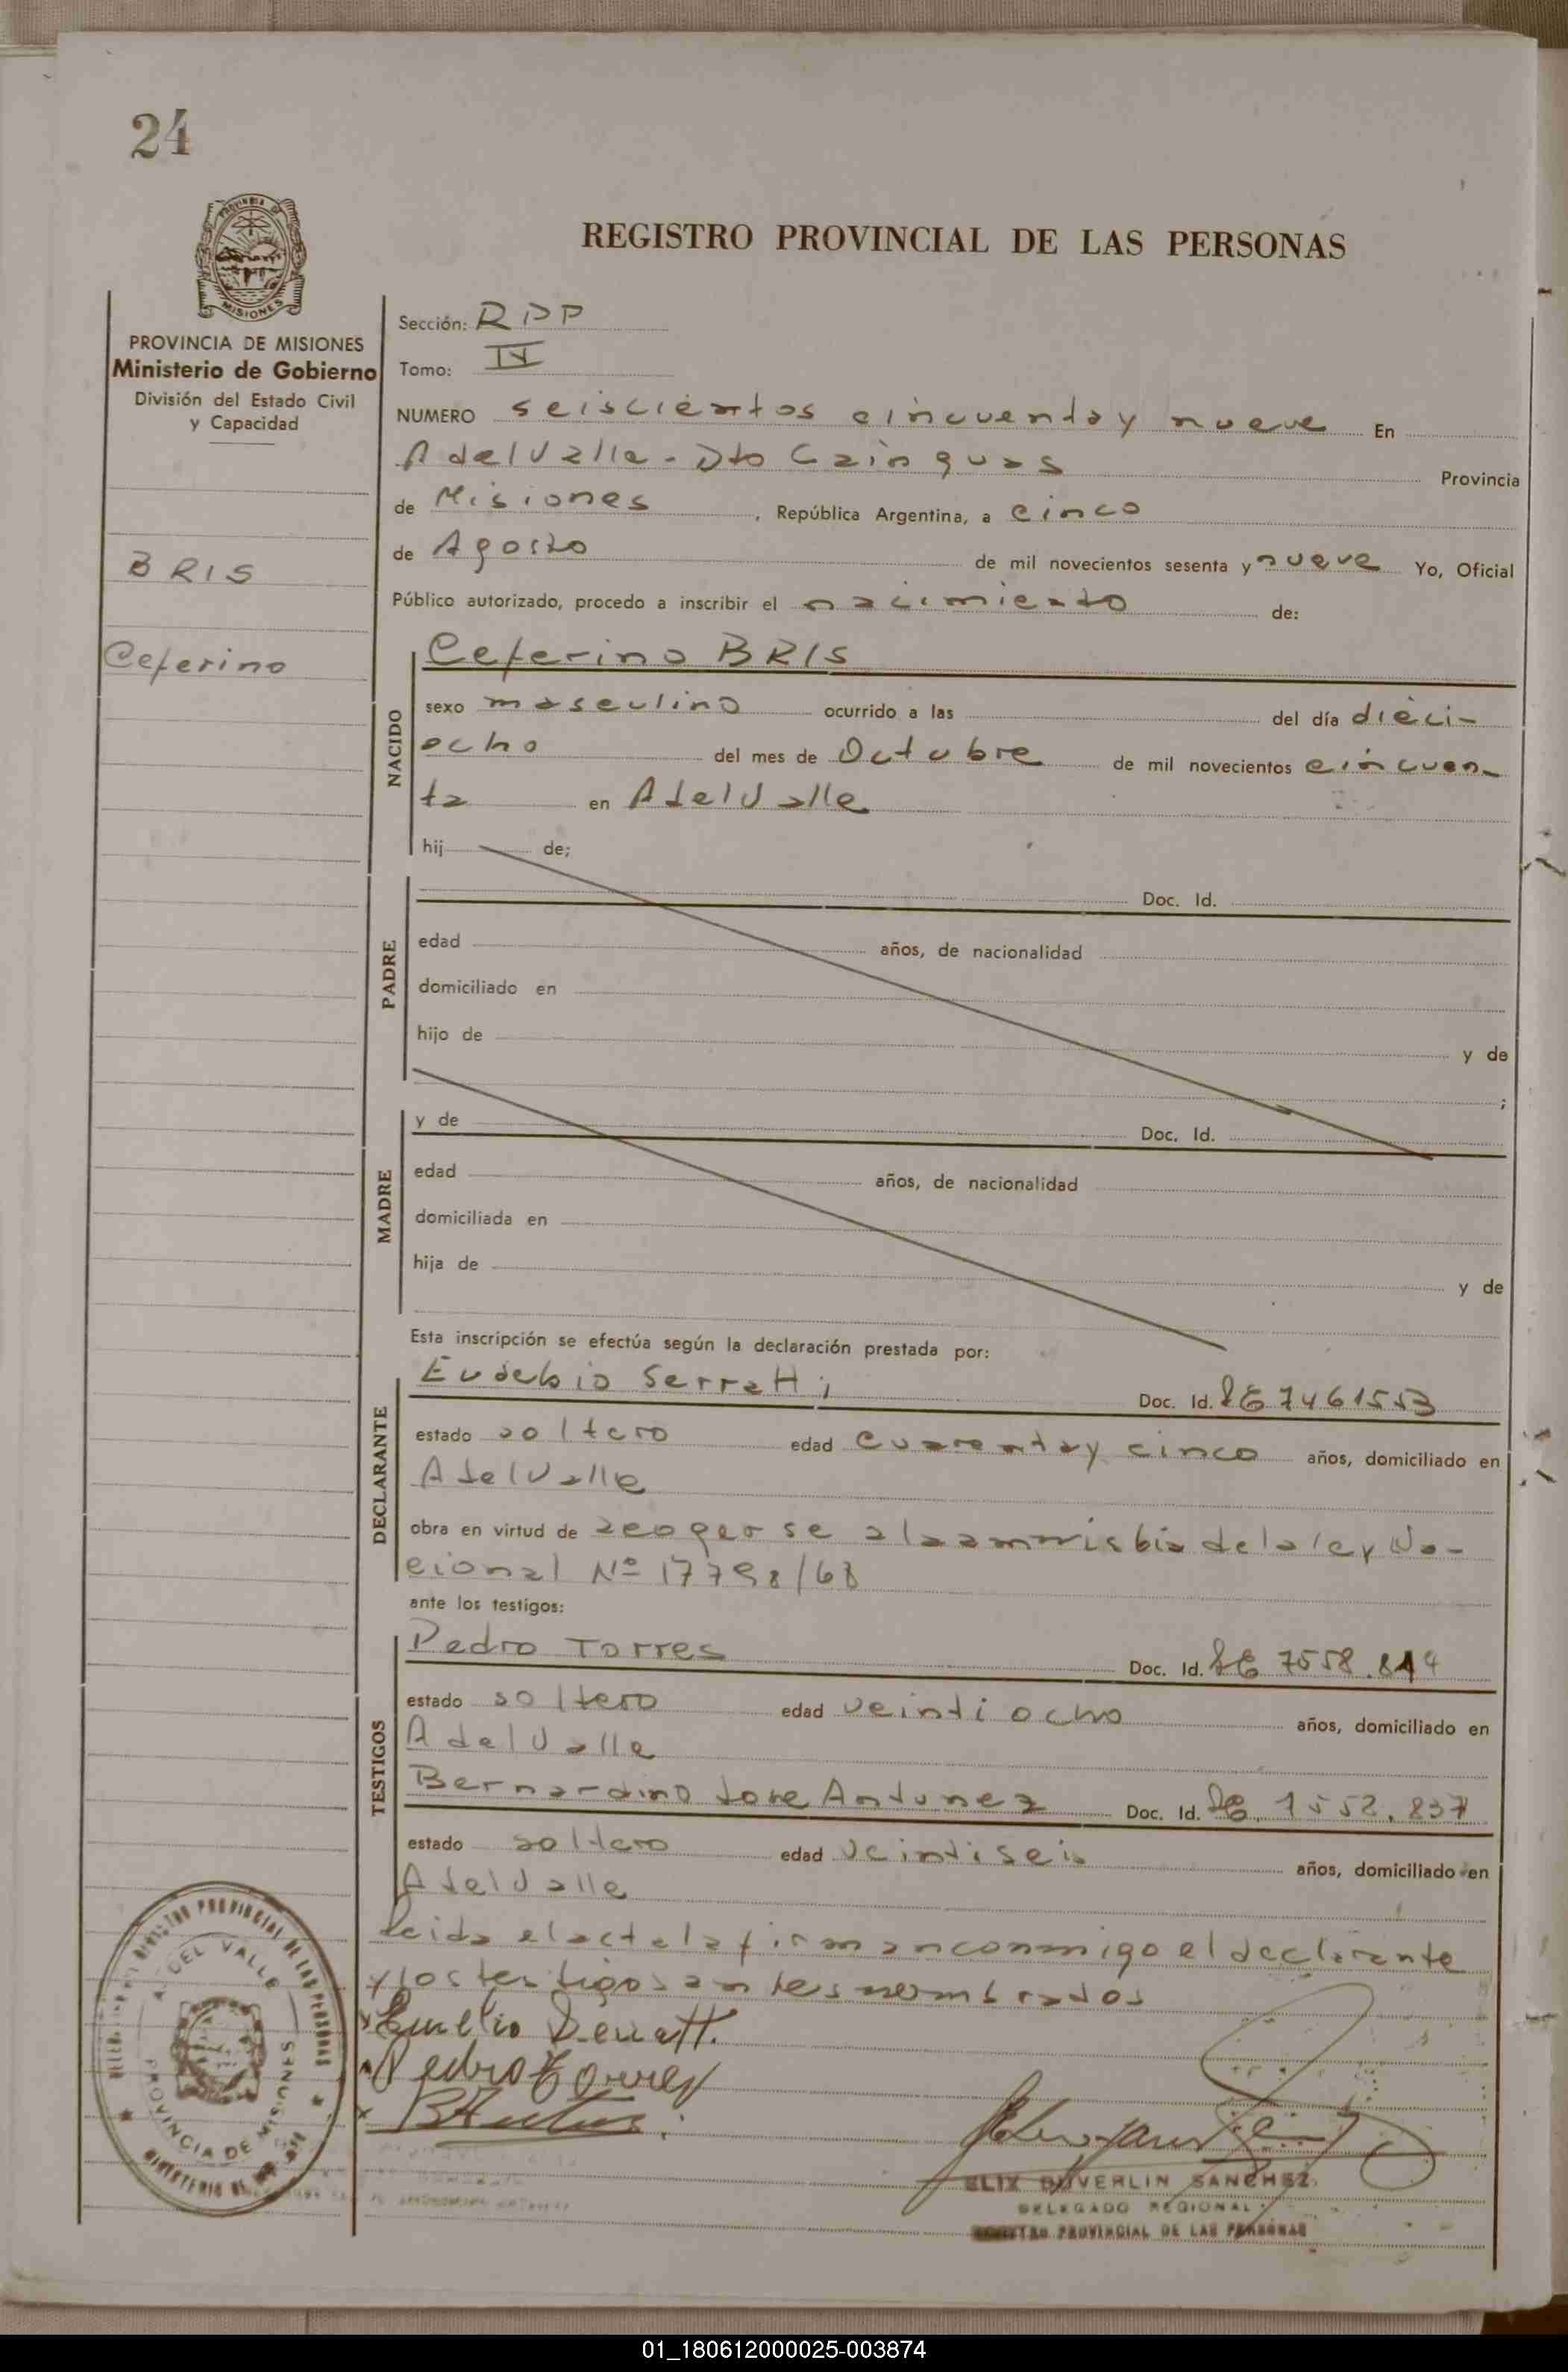 24
REGISTRO PROVINCIAL DE LAS PERSONAS
PROVINCIA DE MISIONES
Ministerio de Gobierno
División del Estado Civil
y Capacidad
BRIS
Ceferino
Sección: RPP
Tomo: IV
NUMERO seiscientos cincuenta y nueve En
A del Valle - Dto Cainguas Provincia
de Misiones, República Argentina, a cinco
de Agosto de mil novecientos sesenta y nueve Yo, Oficial
Público autorizado, procedo a inscribir el nacimiento de:
NACIDO
Ceferino BRIS
sexo masculino ocurrido a las del día dieci-
ocho del mes de Octubre de mil novecientos cincuen-
ta en A del Valle
hij de;
PADRE
Doc. Id.
edad años, de nacionalidad
domiciliado en
hijo de y de
;
MADRE
y de Doc. Id.
edad años, de nacionalidad
domiciliada en
hija de y de
Esta inscripción se efectúa según la declaración prestada por:
DECLARANTE
Eusebio Serratti Doc. Id. LE 7461553
estado soltero edad cuarenta y cinco años, domiciliado en
A del Valle
obra en virtud de acogerse a la amnistia de la ley Na-
cional Nº 17798/68
ante los testigos:
TESTIGOS
Pedro Torres Doc. Id. LE 7558.814
estado soltero edad veintiocho años, domiciliado en
A del Valle
Bernardino Jose Antunez Doc. Id. LE 1552.837
estado soltero edad veintiseis años, domiciliado en
A del Valle
Leida el acta la firman conmigo el declarante
y los testigos antes nombrados
Pedro Torres
A. DEL VALLE
PROVINCIA DE MISIONES
REGISTRO PROVINCIAL DE LAS PERSONAS
ELIX DUVERLIN SANCHEZ
DELEGADO REGIONAL
REGISTRO PROVINCIAL DE LAS PERSONAS
01_180612000025-003874